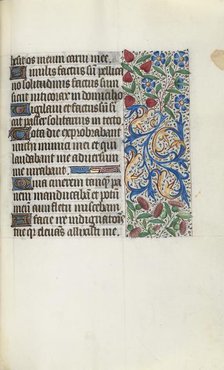 h esit os meum carni mee.
Similis factus sū pellica
no solitudinis factus sum
sicut niticorax in domicilio
Vigilaui et factus sū
sicut passer solitarius in tecto
Tota die exprobrabant
michi inimici mei et qui
laudabant me aduersum
me iurabant
Quia cinerem tanq̄ pa
nem manducabam et potū
meū cum fletu miscebam
A facie ire indignatōis
tue q̄ eleuās allisisti me.